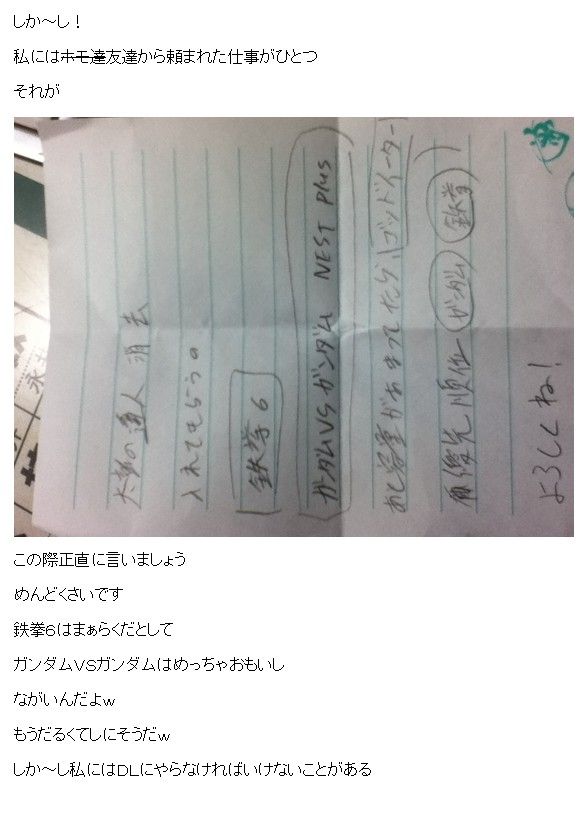 しか～し！
私にはホモ達友達から頼まれた仕事がひとつ
それが
太鼓の達人 消去
入れてもらうの
鉄拳6
ガンダムVSガンダム NEXT Plus
あと容量があまってたら、ゴッドイーター
優先順位 ガンダム 鉄拳
よろしくね!
この際正直に言いましょう
めんどくさいです
鉄拳６はまぁらくだとして
ガンダムＶＳガンダムはめっちゃおもいし
ながいんだよｗ
もうだるくてしにそうだｗ
しか～し私にはＤＬにやらなければいけないことがある